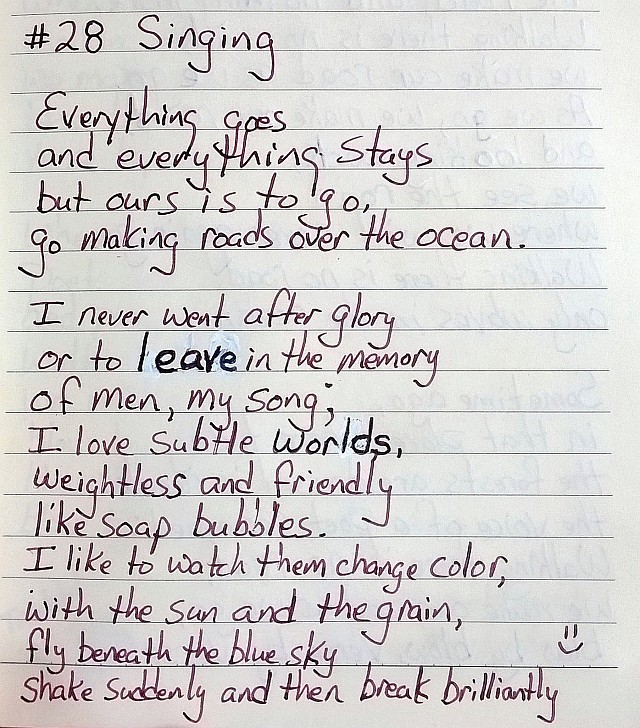 #28 Singing
Everything goes
and everything stays
but ours is to go,
go making roads over the ocean.
I never went after glory
or to leave in the memory
of men, my song;
I love subtle worlds,
weightless and friendly
like soap bubbles.
I like to watch them change color,
with the sun and the grain,
fly beneath the blue sky
shake suddenly and then break brilliantly